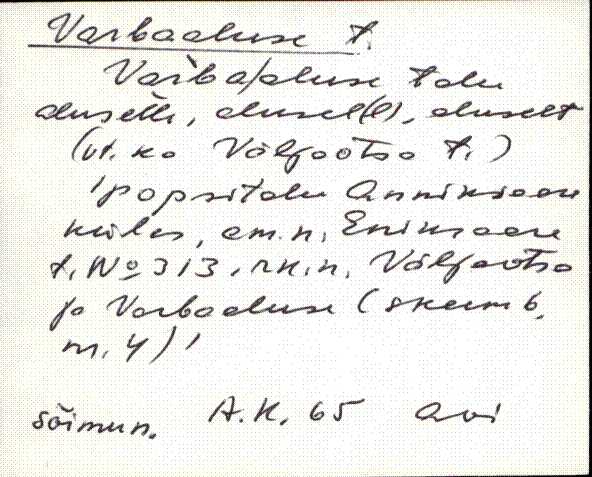 Varbaaluse t.
Varba/aluse talu
aluselle, alusel(l), aluselt
(vt. ka Väljaotsa t.)
'popsitalu Annikvere
külas, am.n. Enikvere
t. No 313, rk.n. Väljaotsa
ja Varbaaluse (skeem 6,
m. 4)'
sõimun. A.K. 65 Avi